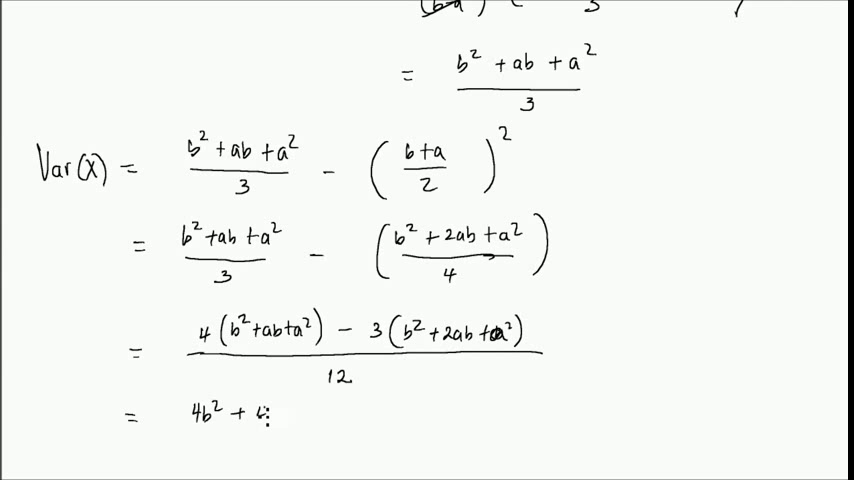 (b-a) ( 3
= (b² + ab + a²)/3
Var(X) = (b² + ab + a²)/3 - ((b+a)/2)²
= (b² + ab + a²)/3 - ((b² + 2ab + a²)/4)
= (4(b² + ab + a²) - 3(b² + 2ab + a²))/12
= 4b² +